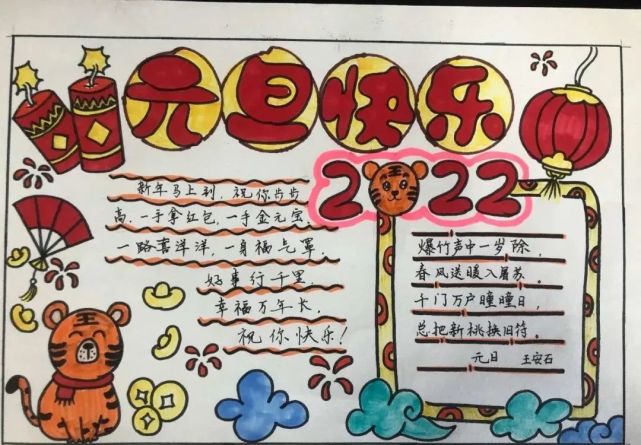 元旦快乐
2022
新年马上到，祝你步步
高，一手拿红包，一手金元宝，
一路喜洋洋，一身福气罩，
好事行千里，
幸福万年长，
祝你快乐！
爆竹声中一岁除，
春风送暖入屠苏。
千门万户曈曈日，
总把新桃换旧符。
元日 王安石
王